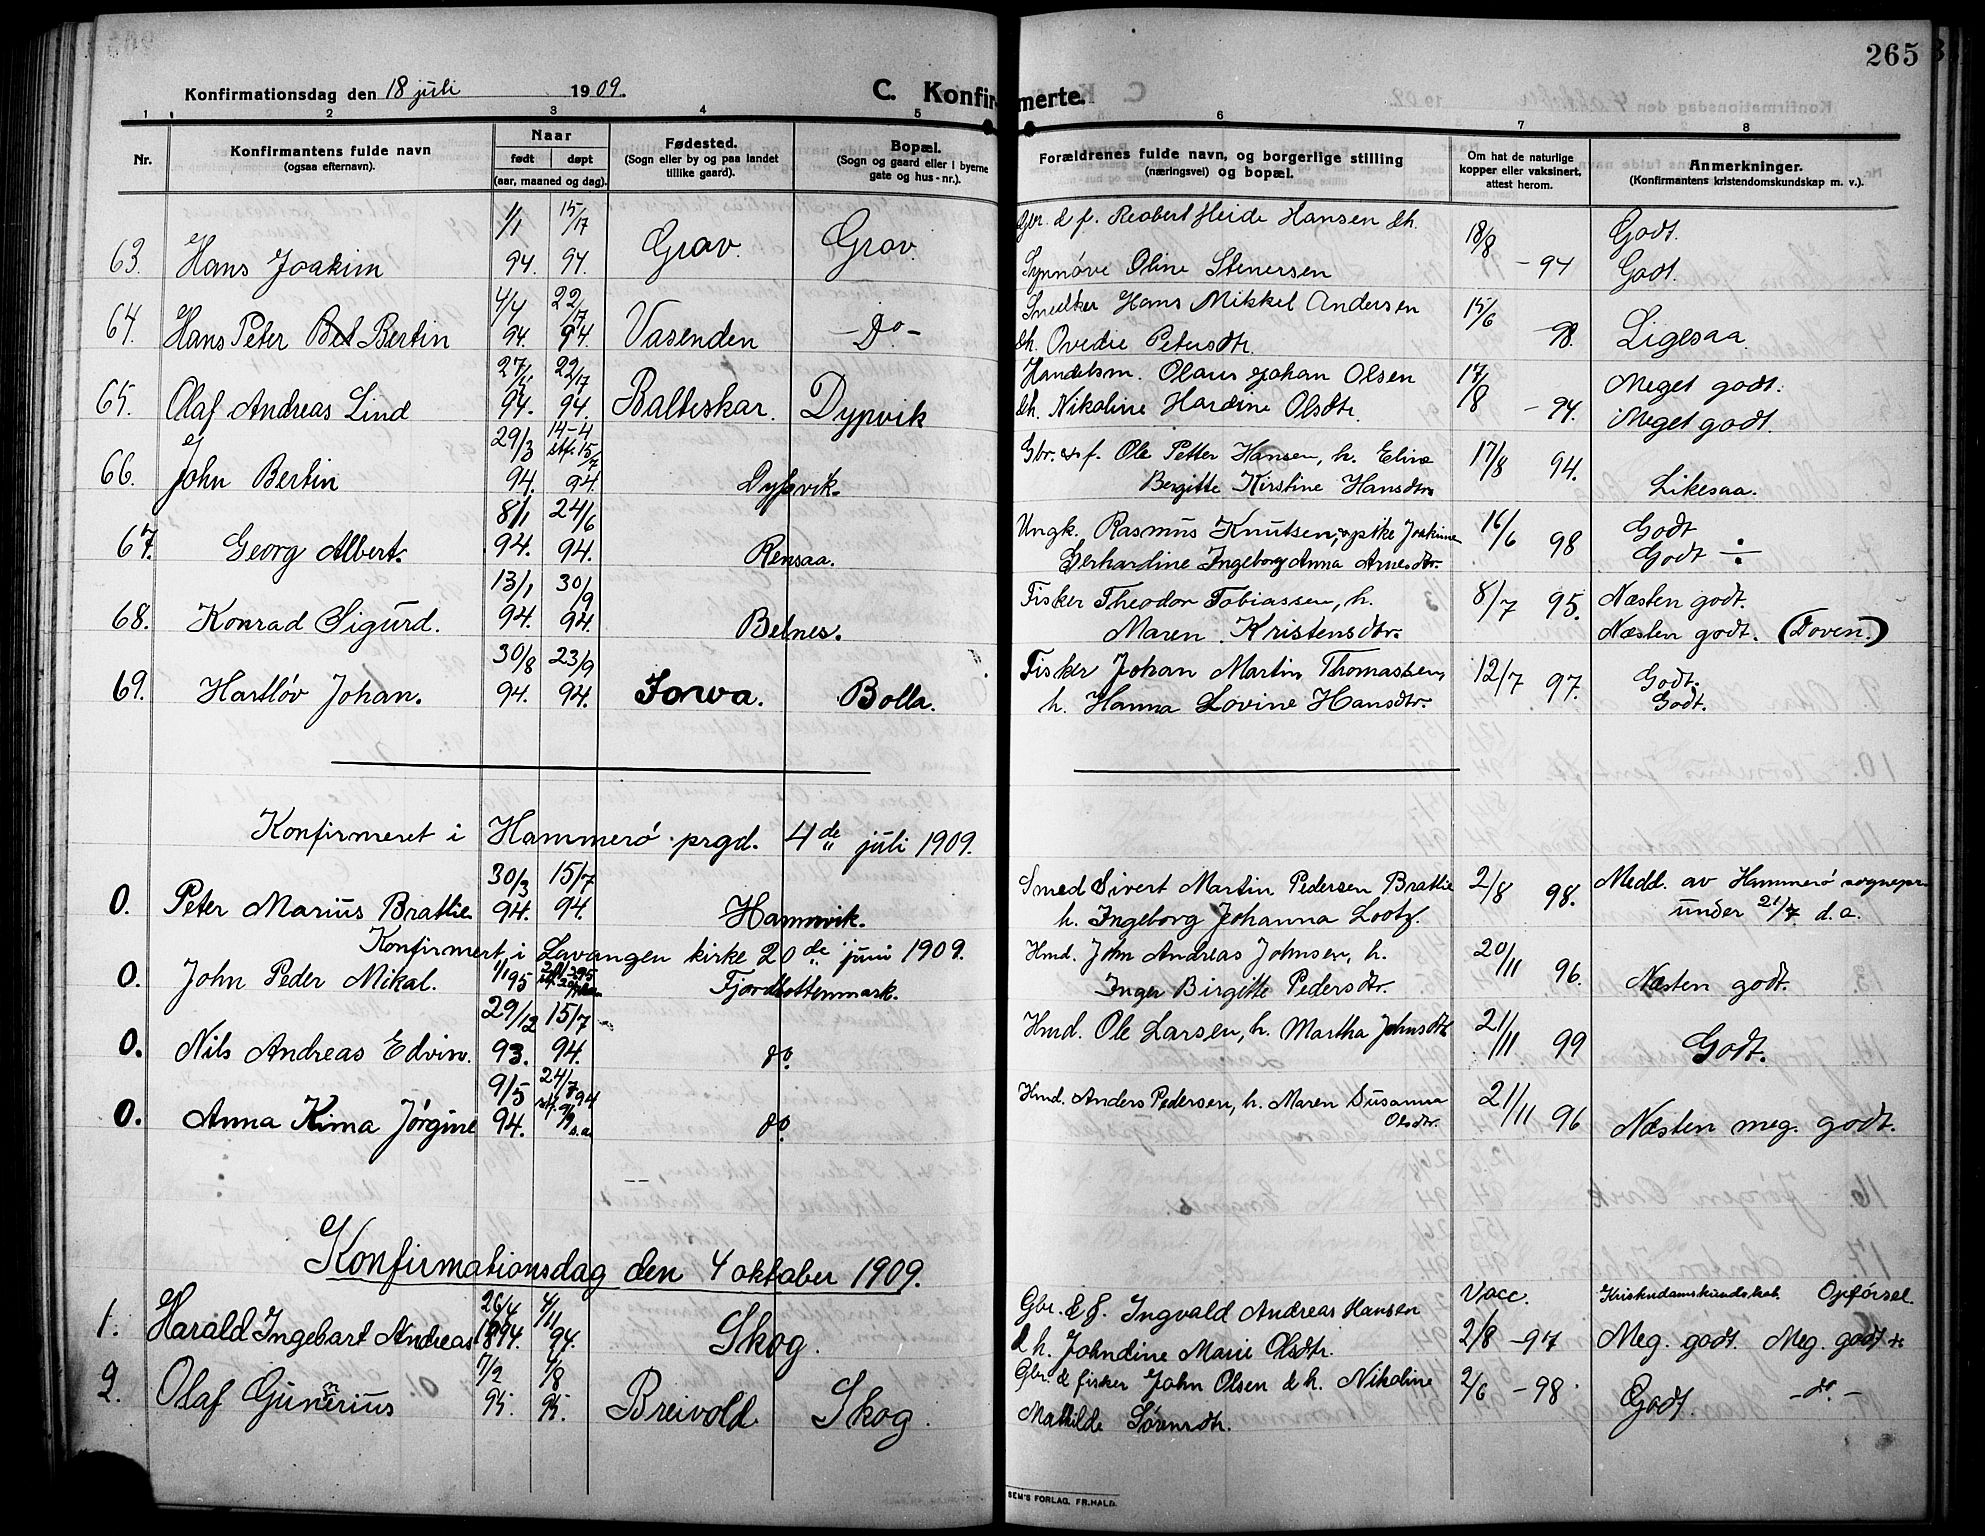 265
Konfirmationsdag den 18 juli 1909. C. Konfirmerte.
1 2 3 4 5 6 7 8
Nr. Konfirmantens fulde navn (ogsaa efternavn). Naar født døpt (aar, maaned og dag). Fødested. (Sogn eller by og paa landet tillike gaard). Bopæl. (Sogn og gaard eller i byerne gate og hus-nr.). Forældrenes fulde navn, og borgerlige stilling (næringsvei) og bopæl. Om hat de naturlige kopper eller vaksinert, attest herom. Anmerkninger. (Konfirmantens kristendomskundskap m. v.).
1/1 15/17 Gbr. & f. Reobert Heide Hansen & h. 18/8 Godt.
63. Hans Joakim 94. 94. Grav. Grav. Synnøve Oline Stenersen - 94 Godt.
4/4 22/17 Snedker Hans Mikkel Andersen 15/6
64. Hans Peter Bet Bertin 94. 94. Vasenden - Do - & h. Ovedie Petersdtr. - 98. Ligesaa.
22/17 Handelsm. Olaus Johan Olsen 17/8 Meget godt.
65. Olaf Andreas Lind 94. 94. Balteskar. Dypvik & h. Nikoline Hardine Olsdtr. - 94. Meget godt.
29/3 14-4 stf. 15/7 Gbr. & f. Ole Petter Hansen, h. Eline 17/8 94.
66. John Bertin 94. 94 Dypvik. Bergitte Kirstine Hansdtr. Likesaa.
8/1 24/6 Ungk. Rasmus Knutsen, o. pike Joakime 16/6 98 Godt
67. Georg Albert. 94. 94. Rensaa. Gerhardine Ingeborg Anna Arnesdtr. Godt ÷
13/1 30/9 Fisker Theodor Tobiassen, h. 8/7 95. Næsten godt.
68. Konrad Sigurd. 94. 94. Belnes. Maren Kristensdtr. Næsten godt. (Doven.)
30/8 23/9 Fisker Johan Martin Thomassen, 12/7 97. Godt.
69. Hartløv Johan. 94. 94. Forva. Bolla. h. Hanna Lovine Hansdtr. Godt.
Konfirmeret i Hammerø prgd. 4de juli 1909.
30/3 15/7 Smed Sivert Martin Pedersen Brattlie 2/8 98. Medd. av Hammerø sognepr.
0. Peter Marius Brattlie 94. 94. Hamnvik. h. Ingeborg Johanna Lootz. under 21/7 d. a.
Konfirmert i Lavangen kirke 20de juni 1909.
0. John Peder Mikal. 1/1 95 Fjordbottenmark. Hmd. John Andreas Johnsen, h. 20/11 96.
Inger Birgitte Pedersdtr. Næsten godt.
29/12 15/7 Hmd. Ole Larsen, h. Martha Johnsdtr 21/11 99
0. Nils Andreas Edvin. 93. 94. do. Godt.
9/5 24/7 94 Hmd. Anders Pedersen, h. Maren Susanna 21/11 96
0. Anna Kima Jørgine 94. do. Olsdtr. Næsten meg. godt.
Konfirmationsdag den 4 oktober 1909.
26/4 4/11 Gbr. & f. Ingvald Andreas Hansen Vacc. Kristendomskundskab. Opførsel.
1. Harald Ingebart Andreas 1894. 94. Skog. & h. Johndine Marie Olsdtr. 2/8 - 97 Meg. godt. Meg. godt
7/2 4/8 Gbr. & fisker John Olsen & h. Nikoline 2/6 - 98.
2. Olaf Gunerius 95. 95. Breivold Skog. Mathilde Sørensdtr. Godt. - do -
SEM'S FORLAG, FR.HALD.